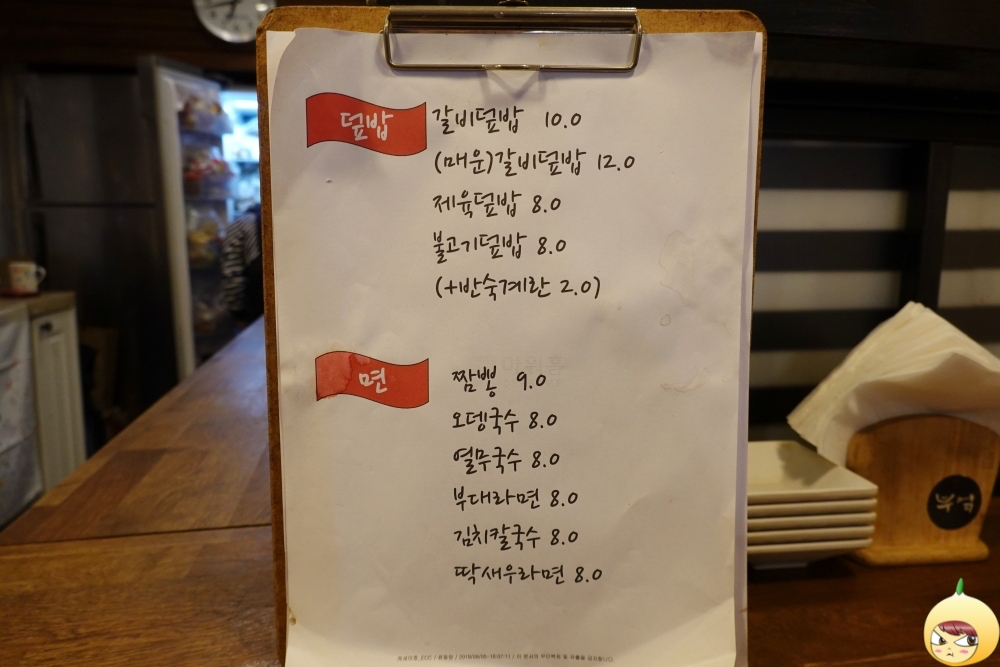 덮밥
갈비덮밥 10.0
(매운)갈비덮밥 12.0
제육덮밥 8.0
불고기덮밥 8.0
(+반숙계란 2.0)
면
짬뽕 9.0
오뎅국수 8.0
열무국수 8.0
부대라면 8.0
김치칼국수 8.0
딱새우라면 8.0